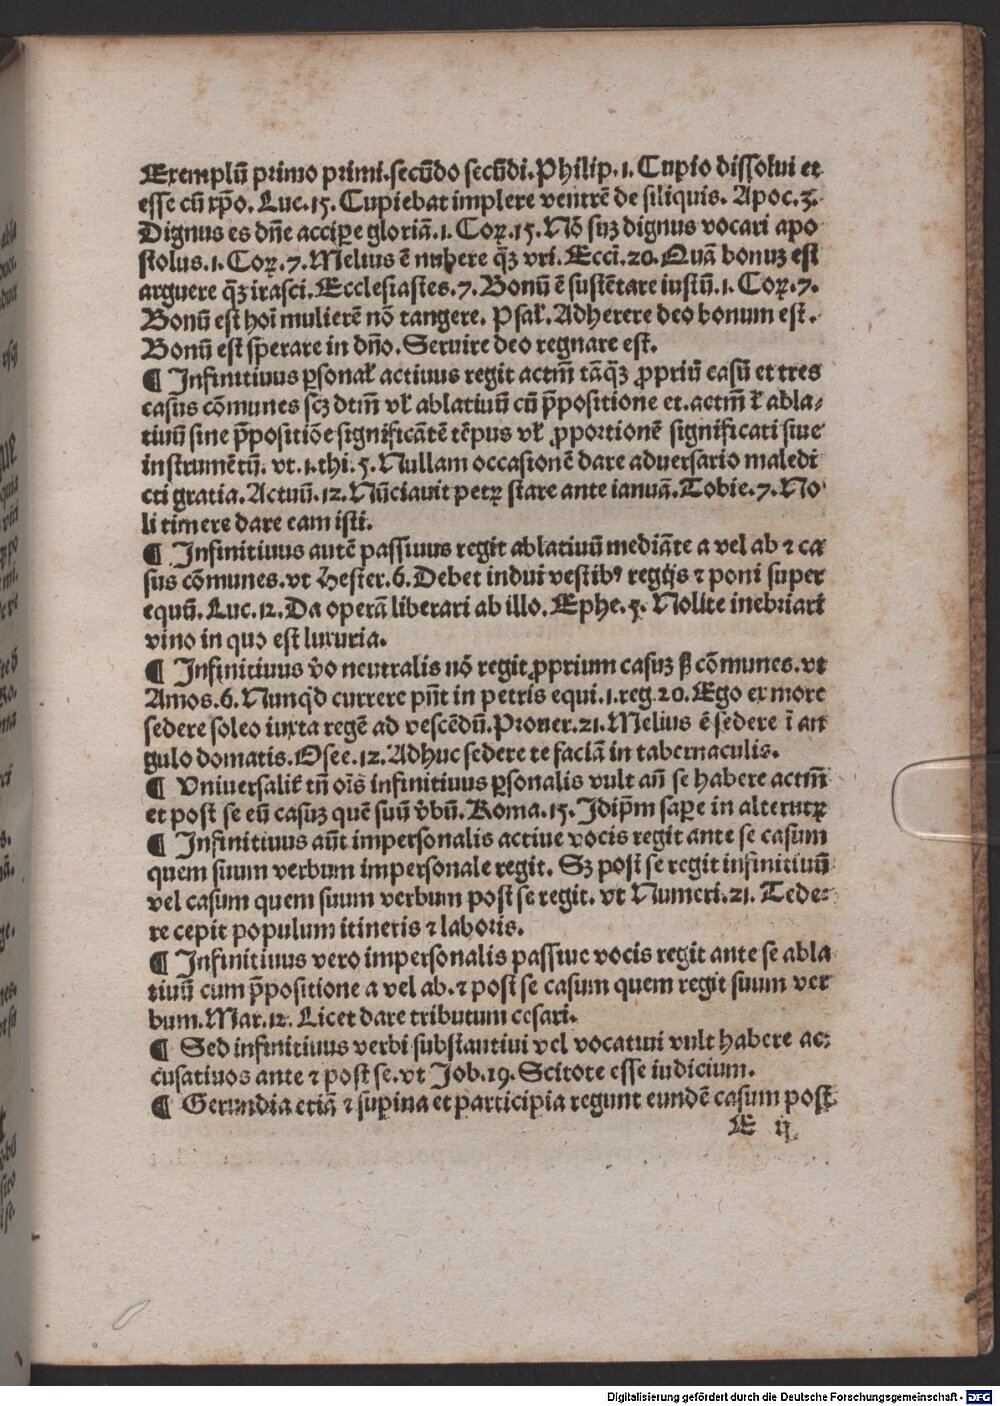 Exemplũ primo primi.secũdo secũdi.Philip.1.Cupio dissolui et
esse cũ xp̃o.Luc.15.Cupiebat implere ventrẽ de siliquis. Apoc.3.
Dignus es dñe accipe gloriã.1.Coꝝ.15.Nõ suꝫ dignus vocari apo
stolus.1.Coꝝ.7.Melius ẽ nubere q̃ꝫ vri.Ecci̅.20.Quã bonuꝫ est
arguere q̃ꝫ irasci.Ecclesiastes.7.Bonũ ẽ sustẽtare iustũ.1.Coꝝ.7.
Bonũ est hoĩ mulierẽ nõ tangere. Psal̃.Adherere deo bonum est.
Bonũ est sperare in dño.Seruire deo regnare est.
¶ Infinitiuus ꝑsonal̃ actiuus regit actm̃ tãq̃ꝫ ꝓpriũ casũ et tres
casus cõmunes scꝫ dtm̃ vl̃ ablatiuũ cũ p̃positione et.actm̃ ł abla-
tiuũ sine p̃positiõe significãtẽ tẽpus vl̃ ꝓportionẽ significati siue
instrumẽtũ. vt.1.thi.5.Nullam occasionẽ dare aduersario maledi
cti gratia.Actuũ.12.Nũciauit petꝝ stare ante ianuã.Tobie.7.No
li timere dare eam isti.
¶ Infinitiuus autẽ passiuus regit ablatiuũ mediãte a vel ab ⁊ ca
sus cõmunes.vt Hester.6.Debet indui vestibꝰ regijs ⁊ poni super
equũ.Luc.12.Da operã liberari ab illo.Ephe.5. Nolite inebriari
vino in quo est luxuria.
¶ Infinitiuus ṽo neutralis nõ regit ꝓprium casuꝫ sꝫ cõmunes.vt
Amos.6.Nunqd̃ currere pñt in petris equi.1.reg.20.Ego ex more
sedere soleo iuxta regẽ ad vescẽdũ.Prouer.21.Melius ẽ sedere ĩ an
gulo domatis.Osee.12.Adhuc sedere te faciã in tabernaculis.
¶ Vniuersalit̃ tñ oĩs infinitiuus ꝑsonalis vult añ se habere actm̃
et post se eũ casuꝫ quẽ suũ ṽbũ.Roma.15.Idip̃m sapere in alterutꝝ
¶ Infinitiuus aũt impersonalis actiue vocis regit ante se casum
quem suum verbum impersonale regit. Sꝫ post se regit infinitiuũ
vel casum quem suum verbum post se regit. vt Numeri.21. Tede-
re cepit populum itineris ⁊ laboris.
¶ Infinitiuus vero impersonalis passiue vocis regit ante se abla
tiuũ cum p̃positione a vel ab.⁊ post se casum quem regit suum ver
bum.Mar.12. Licet dare tributum cesari.
¶ Sed infinitiuus verbi substantiui vel vocatiui vult habere ac-
cusatiuos ante ⁊ post se.vt Job.19.Scitote esse iudicium.
¶ Gerundia etiã ⁊ supina et participia regunt eundẽ casum post
E ij
Digitalisierung gefördert durch die Deutsche Forschungsgemeinschaft - DFG